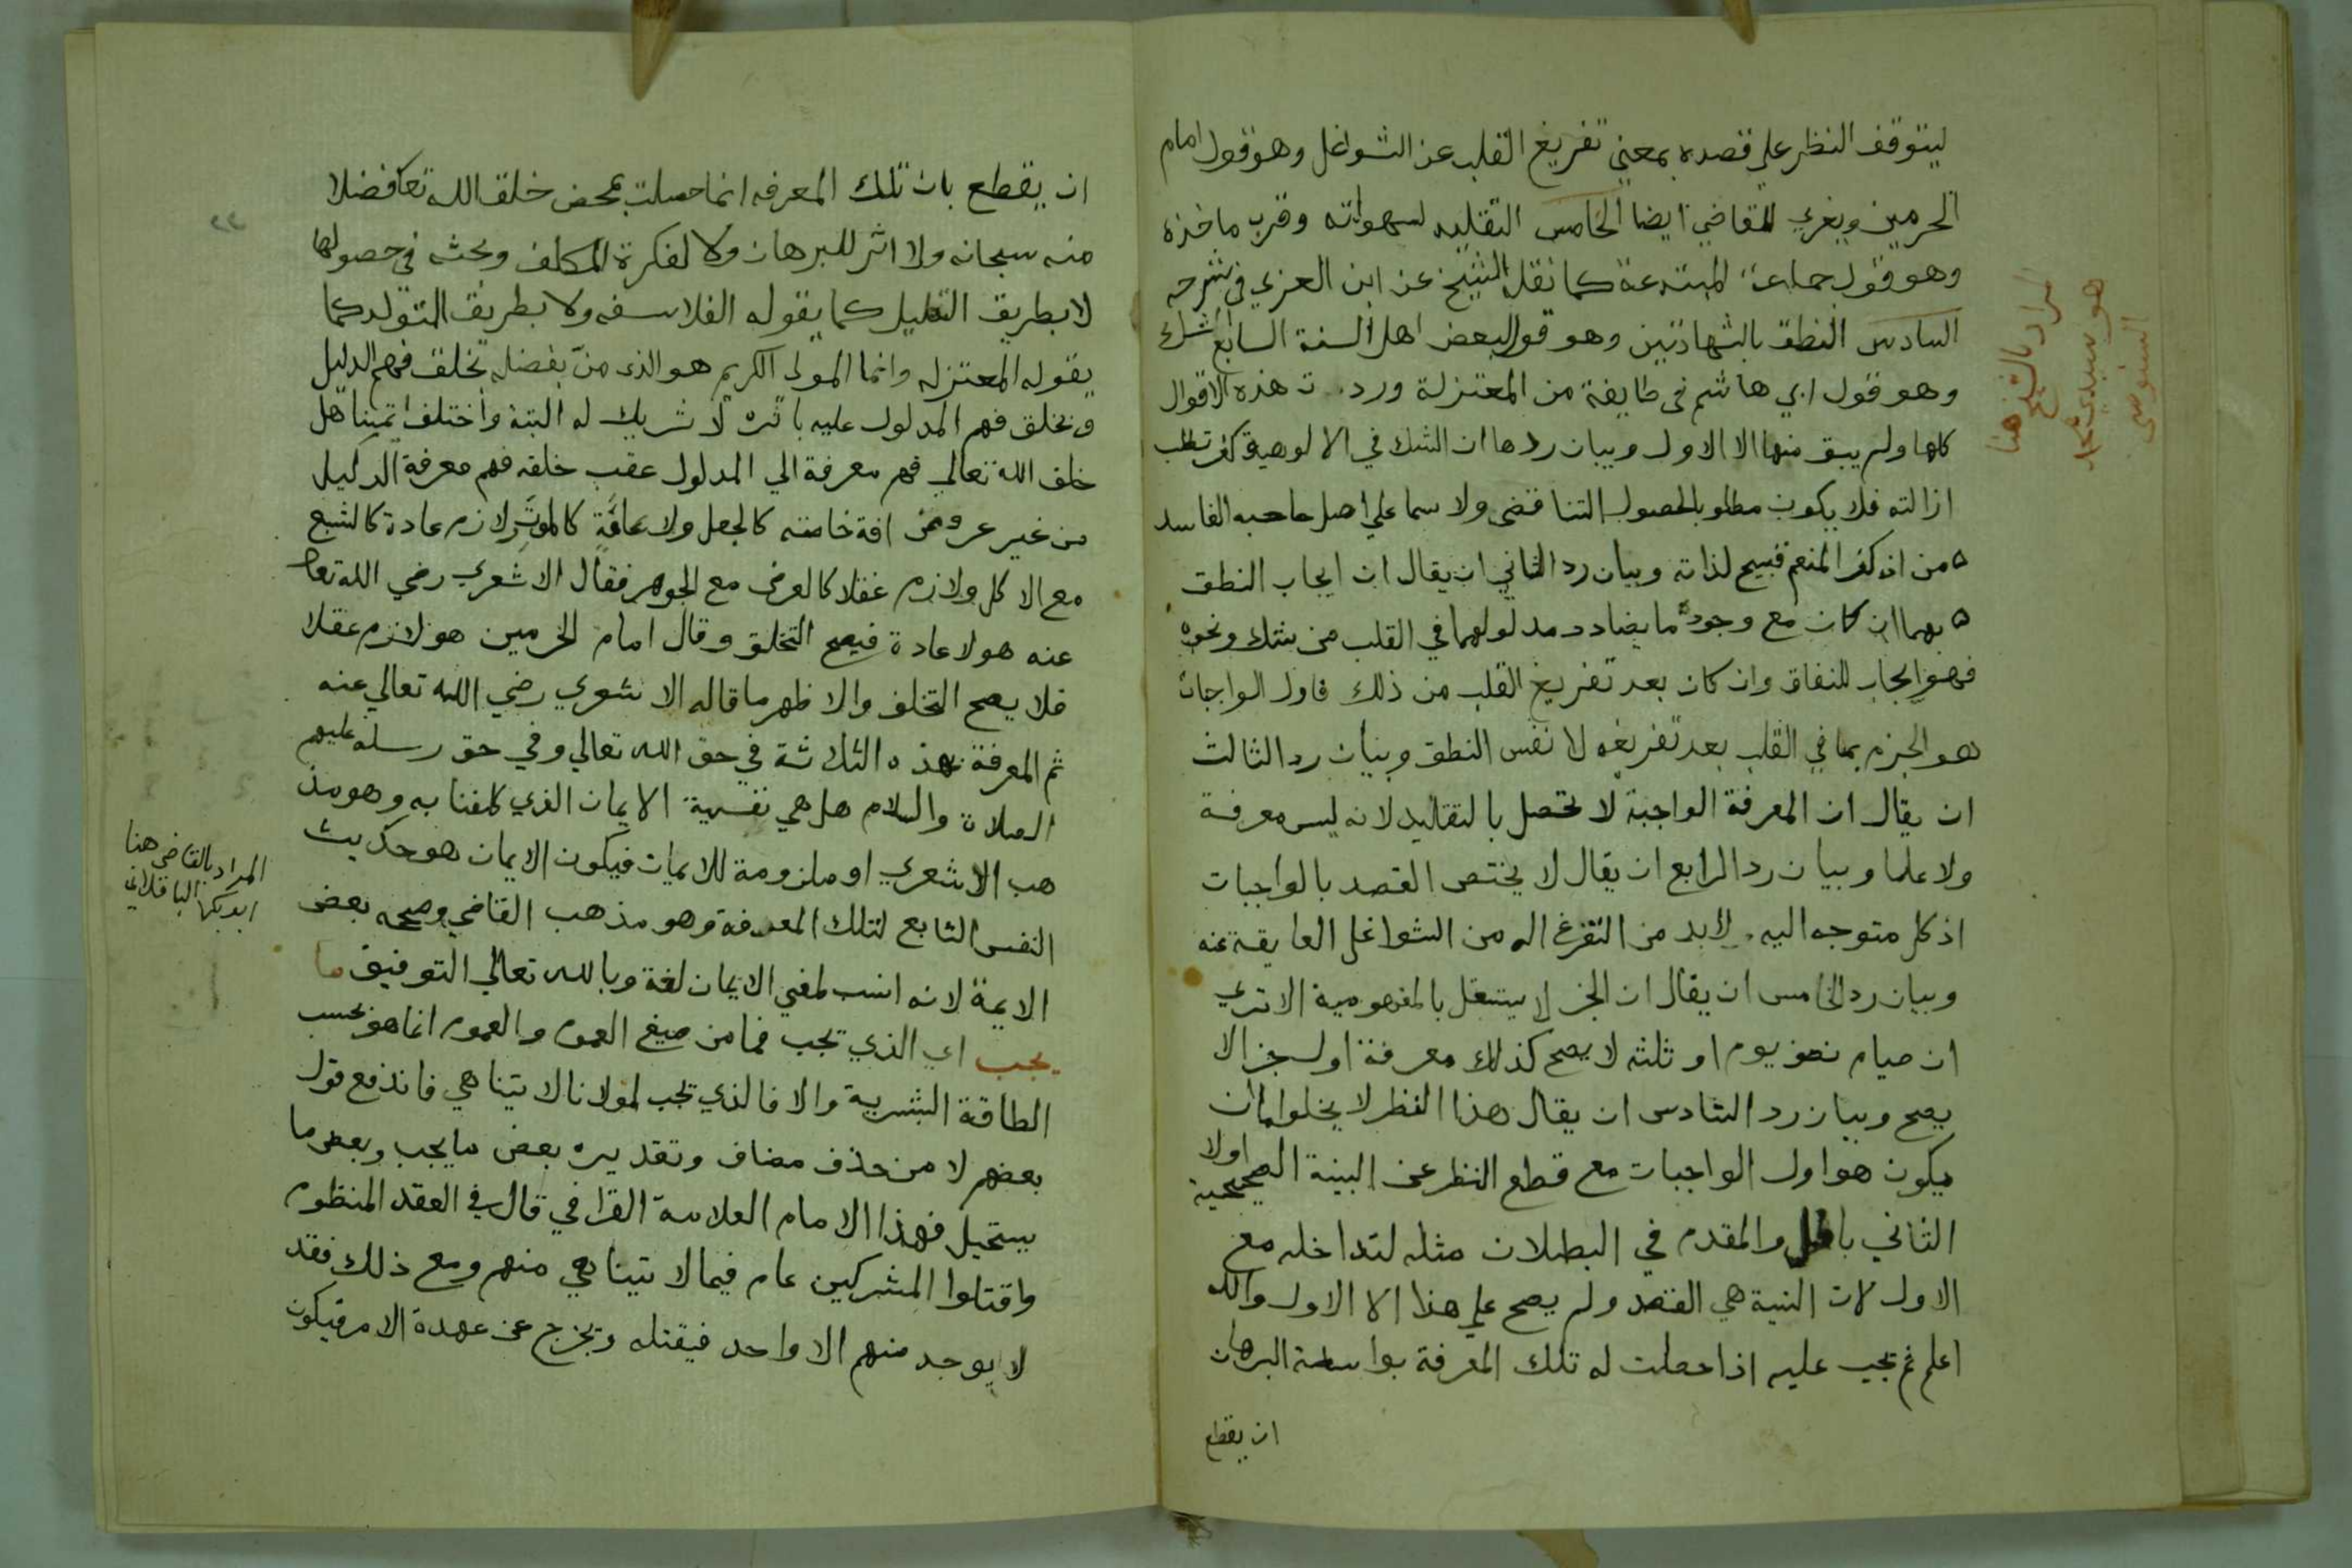 ليتوقف النظر علي قصده بمعني تفريغ القلب عن الشواغل وهو قول امام
الحرمين ويغري للقاضي ايضا الخامس التقليد لسهولته وقرب ماخذه
وهو قول جماعة المبتدعة كما نقل الشيخ عن ابن العربي في شرحه
السادس النطق بالشهادتين وهو قول لبعض اهل السنة السابع الشك
وهو قول ابي هاشم في طايفة من المعتزلة ورد ت هذه الاقوال
كلها ولم يبق منها الا الاول وبيان ردها ان الشك في الالوهية كفر تطلب
ازالته فلا يكون مطلوب الحصول التناقض ولا سما علي اصل صاحبه الفاسد
من ان كفر المنعم قبيح لذاته وبيان رد الثاني ان يقال ان ايجاب النطق
بهما ان كان مع وجود ما يضادد مدلولهما في القلب من شك ونحوه
فهو ايجاب للنفاق وان كان بعد تفريغ القلب من ذلك فاول الواجبات
هو الجزم بما في القلب بعد تفريغه لا نفس النطق وبيان رد الثالث
ان يقال ان المعرفة الواجبة لا تحصل بالتقليد لانه ليس معرفة
ولا علما وبيان رد الرابع ان يقال لا يختص القصد بالواجبات
اذ كل متوجه اليه لا بد من التفرغ اله من الشواغل العايقة عنه
وبيان رد الخامس ان يقال ان الجز لا يستقل بالمفهومية الا تري
ان صيام نصف يوم او ثلثه لا يصح كذلك معرفة اول جز الا
يصح وبيان رد السادس ان يقال هذا النظر لا يخلوا اما ان
يكون هو اول الواجبات مع قطع النظر عن البنية الصحيحية اولا
الثاني باطل والمقدم في البطلان مثله لتداخله مع
الاول لان النية هي القصد ولم يصح علي هذا الا الاول والله
اعلم ثم يجب عليه اذا حصلت له تلك المعرفة بواسطة البرهان
ان يقطع
المراد بالشيخ هنا
هو سيدي محمد
السنوسي
ان يقطع بان تلك المعرفه انما حصلت بمحض خلق الله تعا فضلا
منه سبحانه ولا اثر للبرهان ولا لفكرة المكلف وبحثه في حصولها
لا بطريق التعليل كما يقوله الفلاسفه ولا بطريق التولد كما
يقوله المعتزله وانما المولي الكريم هو الذي منّ بفضله بخلق فهم الدليل
وبخلق فهم المدلول عليه باثره لا شريك له البتة واختلف ايمتنا هل
خلق الله تعالي فهم معرفة الي المدلول عقب خلقه فهم معرفة الدليل
من غير عروض افة خاصه كالجهل ولا عامّة كالموت لازم عادة كالشبع
مع الاكل ولازم عقلا كالعرض مع الجوهر فقال الاشعري رضي الله تعا
عنه هو لا عادة فيصح التخلق وقال امام الحرمين هو لازم عقلا
فلا يصح التخلف والاظهر ما قاله الاشعري رضي الله تعالي عنه
ثم المعرفة بهذه الثلاثة في حق الله تعالي وفي حق رسله عليهم
الصلاة والسلام هل هي نفسية الايمان الذي كلفنا به وهو مذ
هب الاشعري او ملزومة للايمان فيكون الايمان هو حديث
النفس التابع لتلك المعرفة وهو مذهب القاضي وصححه بعض
الايمة لانه انسب لمعني الايمان لغة وبالله تعالي التوفيق ما
يجب اي الذي يجب فما من صيغ العموم والعموم انما هو بحسب
الطاقة البشرية والا فالذي يجب لمولانا لا يتناهي فاندفع قول
بعضهم لا من حذف مضاف وتقديره بعض ما يجب وبعض ما
يستحيل فهذا الامام العلامة القرافي قال في العقد المنظوم
واقتلوا المشركين عام فيما لا يتناهي منهم ومع ذلك فقد
لا يوجد منهم الا واحد فيقتله ويخرج عن عهدة الامر فيكون
المراد بالقاضي هنا
ابو بكر الباقلاني